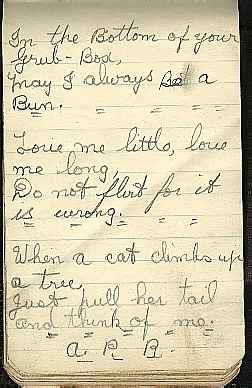 In the Bottom of your
Grub-Box,
May I always be a
Bun.
Love me little, love
me long,
Do not flirt for it
is wrong.
When a cat climbs up
a tree,
Just pull her tail
and think of me.
A. P. R.